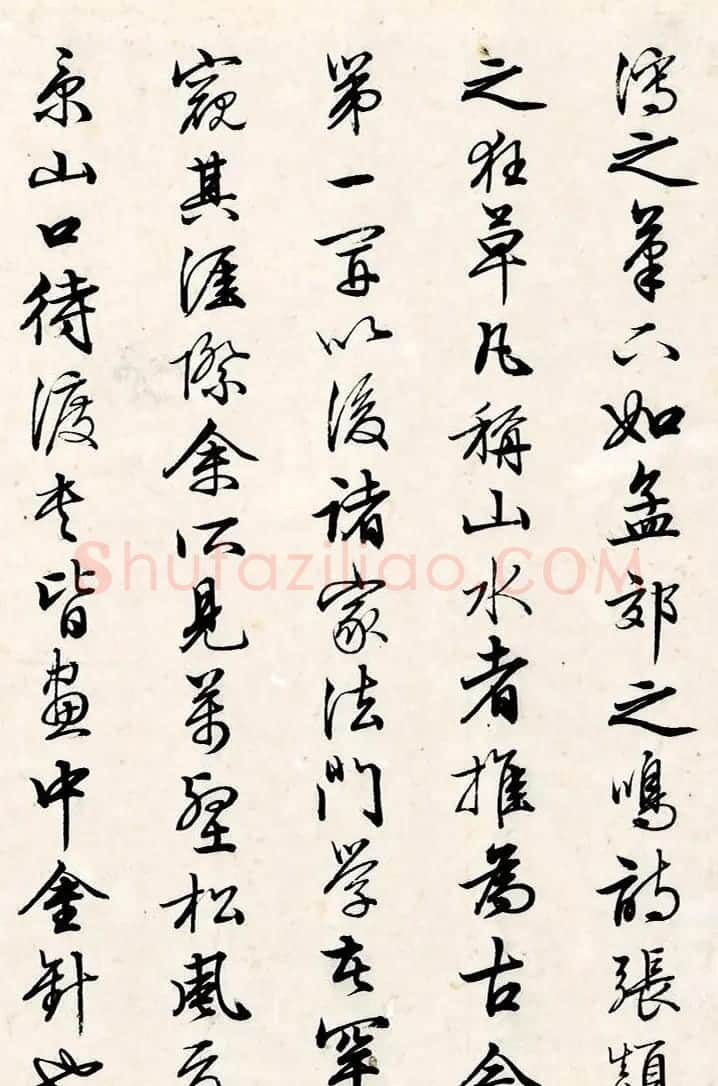 瀉之筆下如孟郊之鳴詩張顛
之狂草凡稱山水者推為古今
第一開以後諸家法門學者罕
窺其涯際余所見萬壑松風
京山口待渡卷皆畫中金針也
Shufaziliao.COM